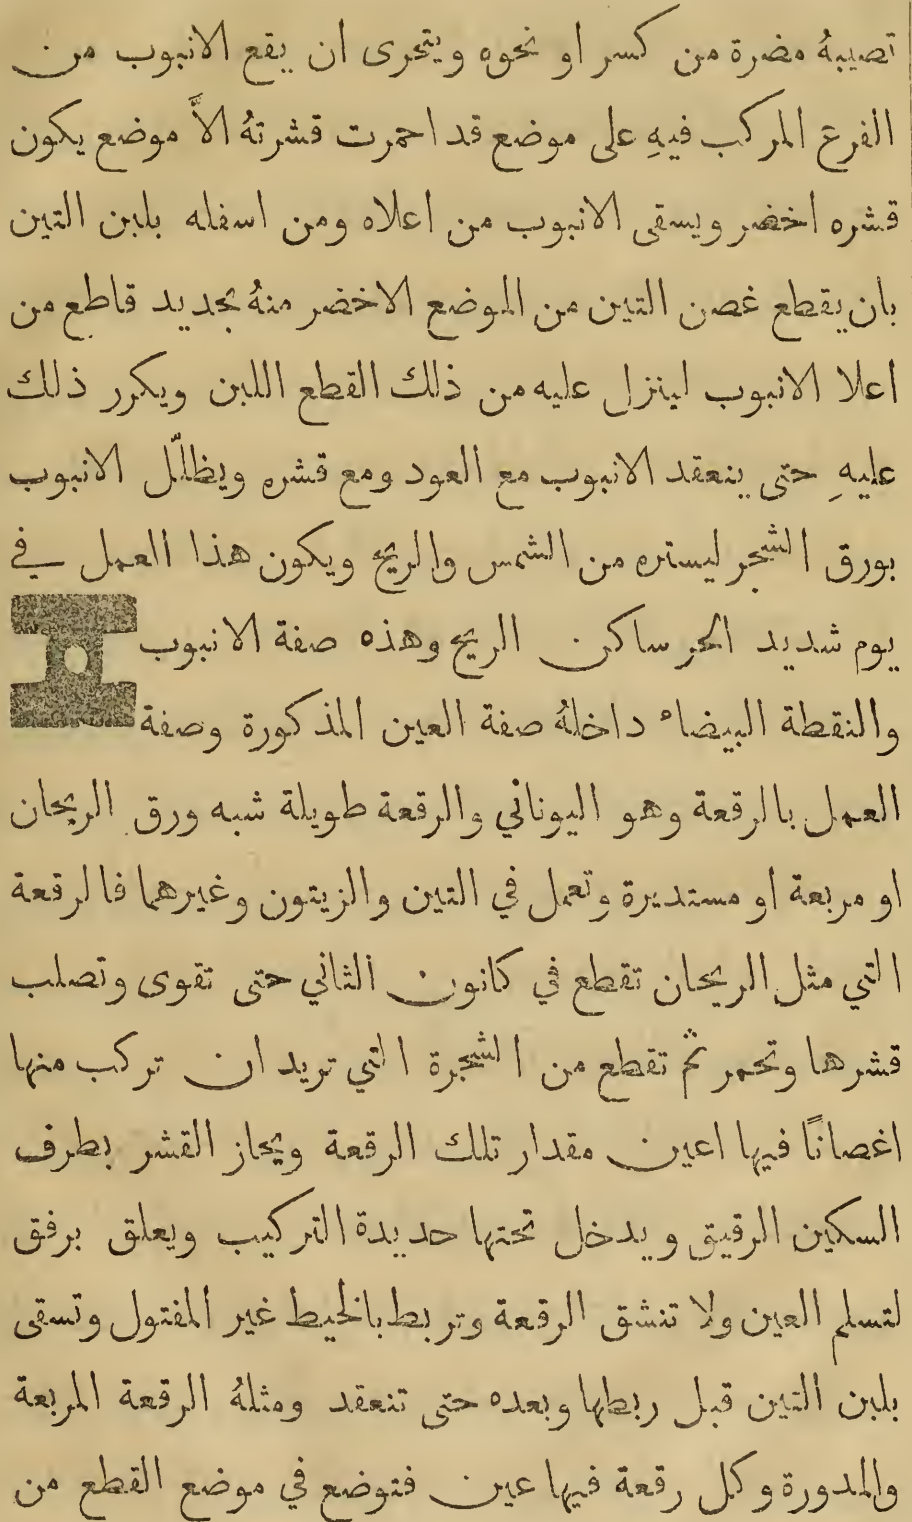 تصيبهُ مضرة من كسر او نحوه ويتحرى ان يقع الانبوب من
الفرع المركب فيهِ على موضع قد احمرت قشرتهُ الاَّ موضع يكون
قشره اخضر ويسقى الانبوب من اعلاه ومن اسفله بلبن التين
بان يقطع غصن التين من الموضع الاخضر منهُ بحديد قاطع من
اعلا الانبوب لينزل عليه من ذلك القطع اللبن ويكرر ذلك
عليهِ حتى ينعقد الانبوب مع العود ومع قشره ويظلّل الانبوب
بورق الشجر ليستره من الشمس والريح ويكون هذا العمل في
يوم شديد الحر ساكن الريح وهذه صفة الانبوب
والنقطة البيضاء داخلهُ صفة العين المذكورة وصفة
العمل بالرقعة وهو اليوناني والرقعة طويلة شبه ورق الريحان
او مربعة او مستديرة وتعمل في التين والزيتون وغيرهما فالرقعة
التي مثل الريحان تقطع في كانون الثاني حتى تقوى وتصلب
قشرها وتحمر ثم تقطع من الشجرة التي تريد ان تركب منها
اغصانًا فيها اعين مقدار تلك الرقعة ويحاز القشر بطرف
السكين الرقيق ويدخل تحتها حديدة التركيب ويعلق برفق
لتسلم العين ولا تنشق الرقعة وتربط بالخيط غير المفتول وتسقى
بلبن التين قبل ربطها وبعده حتى تنعقد ومثلهُ الرقعة المربعة
والمدورة وكل رقعة فيها عين فتوضع في موضع القطع من